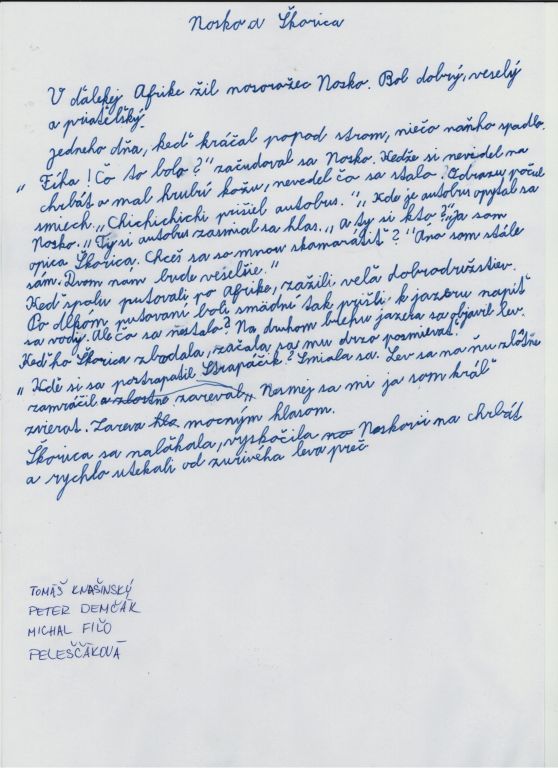 Nosko a Škorica
V ďalekej Afrike žil nosorožec Nosko. Bol dobrý, veselý
a priateľský.
Jedneho dňa, keď kráčal popod strom, niečo naňho spadlo.
„Fíha! Čo to bolo?" začudoval sa Nosko. Kedže si nevidel na
chrbát a mal hrubú kožu, nevedel čo sa stalo. Odrazu počul
smiech. „Chichichichi prišiel autobus." „Kde je autobus opýtal sa
Nosko. „Ty si autobus zasmial sa hlas. „a ty si kto?" „Ja som
opica Škorica. Chceš sa so mnou skamarátiť?" „Áno som stále
sám. Dvom nám bude veselšie."
Keď spolu putovali po Afrike, zažili veľa dobrodružstiev.
Po dlhom putovaní boli smädní tak prišli k jazeru napiť
sa vody. Ale čo sa nestalo? Na druhom brehu jazera sa objavil lev.
Keď ho Škorica zbadala, začala sa mu drzo posmievať.
„Kde si sa postrapatil Strapáčik? Smiala sa. Lev sa na ňu zlostne
zamračil a zlostne zareval„ Nesmej sa mi ja som kráľ
zvierat. Zareva hla mocným hlasom.
Škorica sa naľakala, vyskočila na Noskovi na chrbát
a rychlo utekali od zurivého leva preč
TOMÁŠ KNAŠINSKÝ
PETER DEMČÁK
MICHAL FIĽO
PELEŠČÁKOVÁ